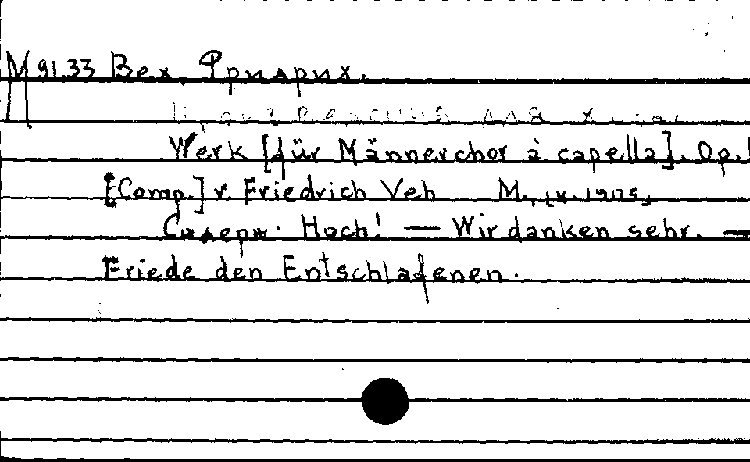 М 91.33 Вех, Фридрих.
для
Werk [für Männerchor à capella]. Op.
[Comp.] v. Friedrich Veh M.,
Содерж. Hoch! — Wir danken sehr. —
Friede den Entschlafenen.